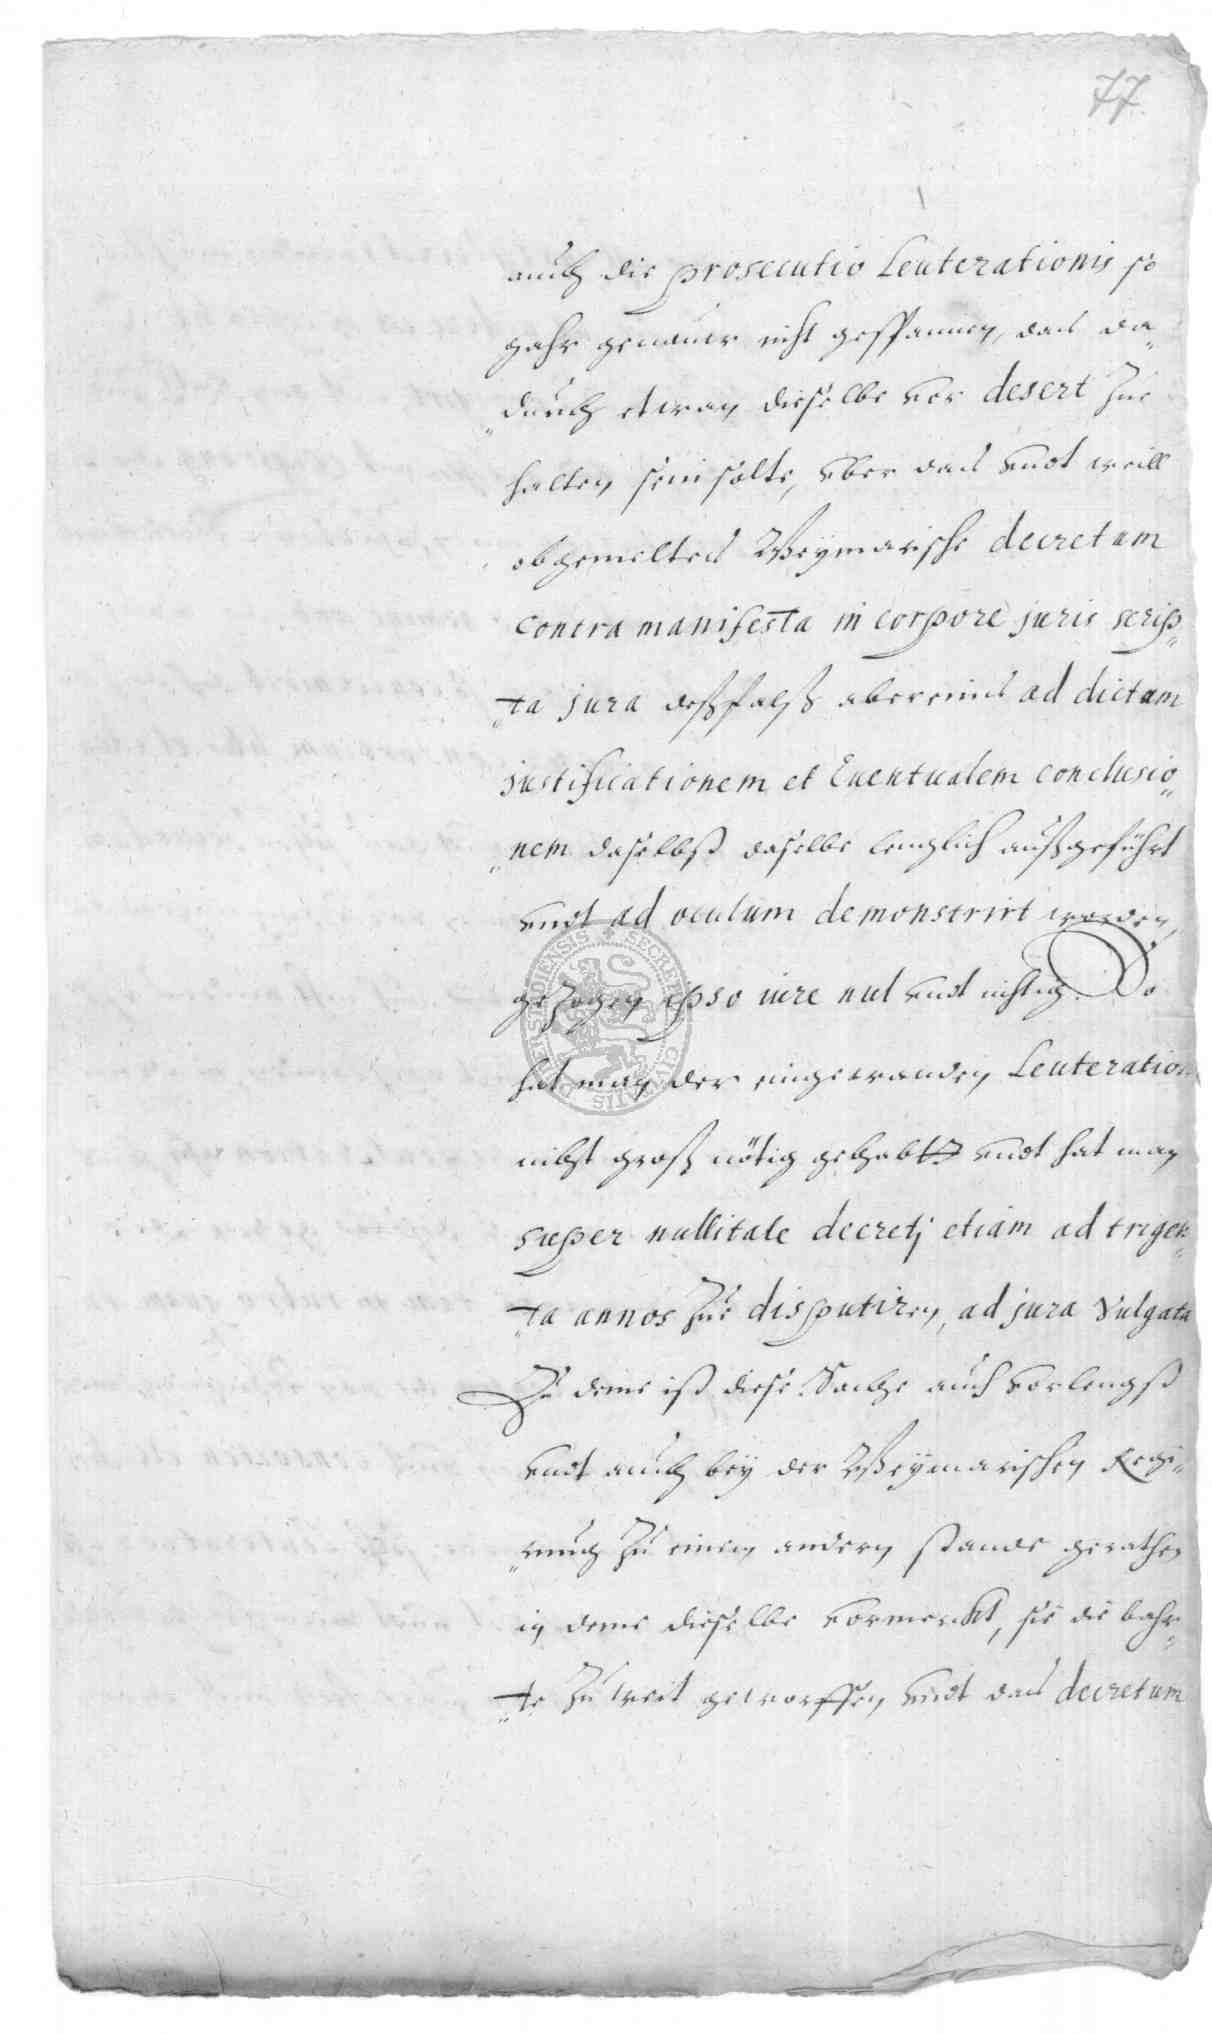 77
auch die prosecutio Leuterationis so
gahr genauer nicht gespannen, das da„
„durch etwan dieselbe vor desert zue
halten sein solte, vber das vndt weill
obgemeltes Weymarische decretum
contra manifesta in corpore juris scrip„
„ta jura deßfalß abereins ad dictam
justificationem et Euentualem conclusio„
„nem daselbst daselbe lenglich außgeführt
vndt ad oculum demonstrirt worden,
gezogen ipso iure nul vndt nichtig. So
hat man der eingewanden Leuteration
nicht groß nötig gehabt, vndt hat man
super nullitate decretj etiam ad trigen„
„ta annos zue disputiren, ad jura vulgata
Zu deme ist diese Sache auch vorlengst
vndt auch bey der Weymarischen Regi„
„rung zu einem andern stande gerathen
in deme dieselbe vormerckt, sie die bahr„
„te zu weit geworffen, vndt das decretum